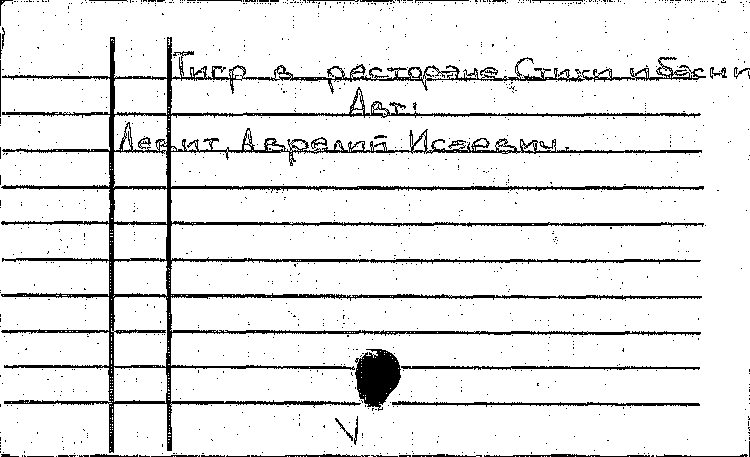 Тигр в ресторане. Стихи и басни
Авт:
Левит, Аврелий Исаевич.
V